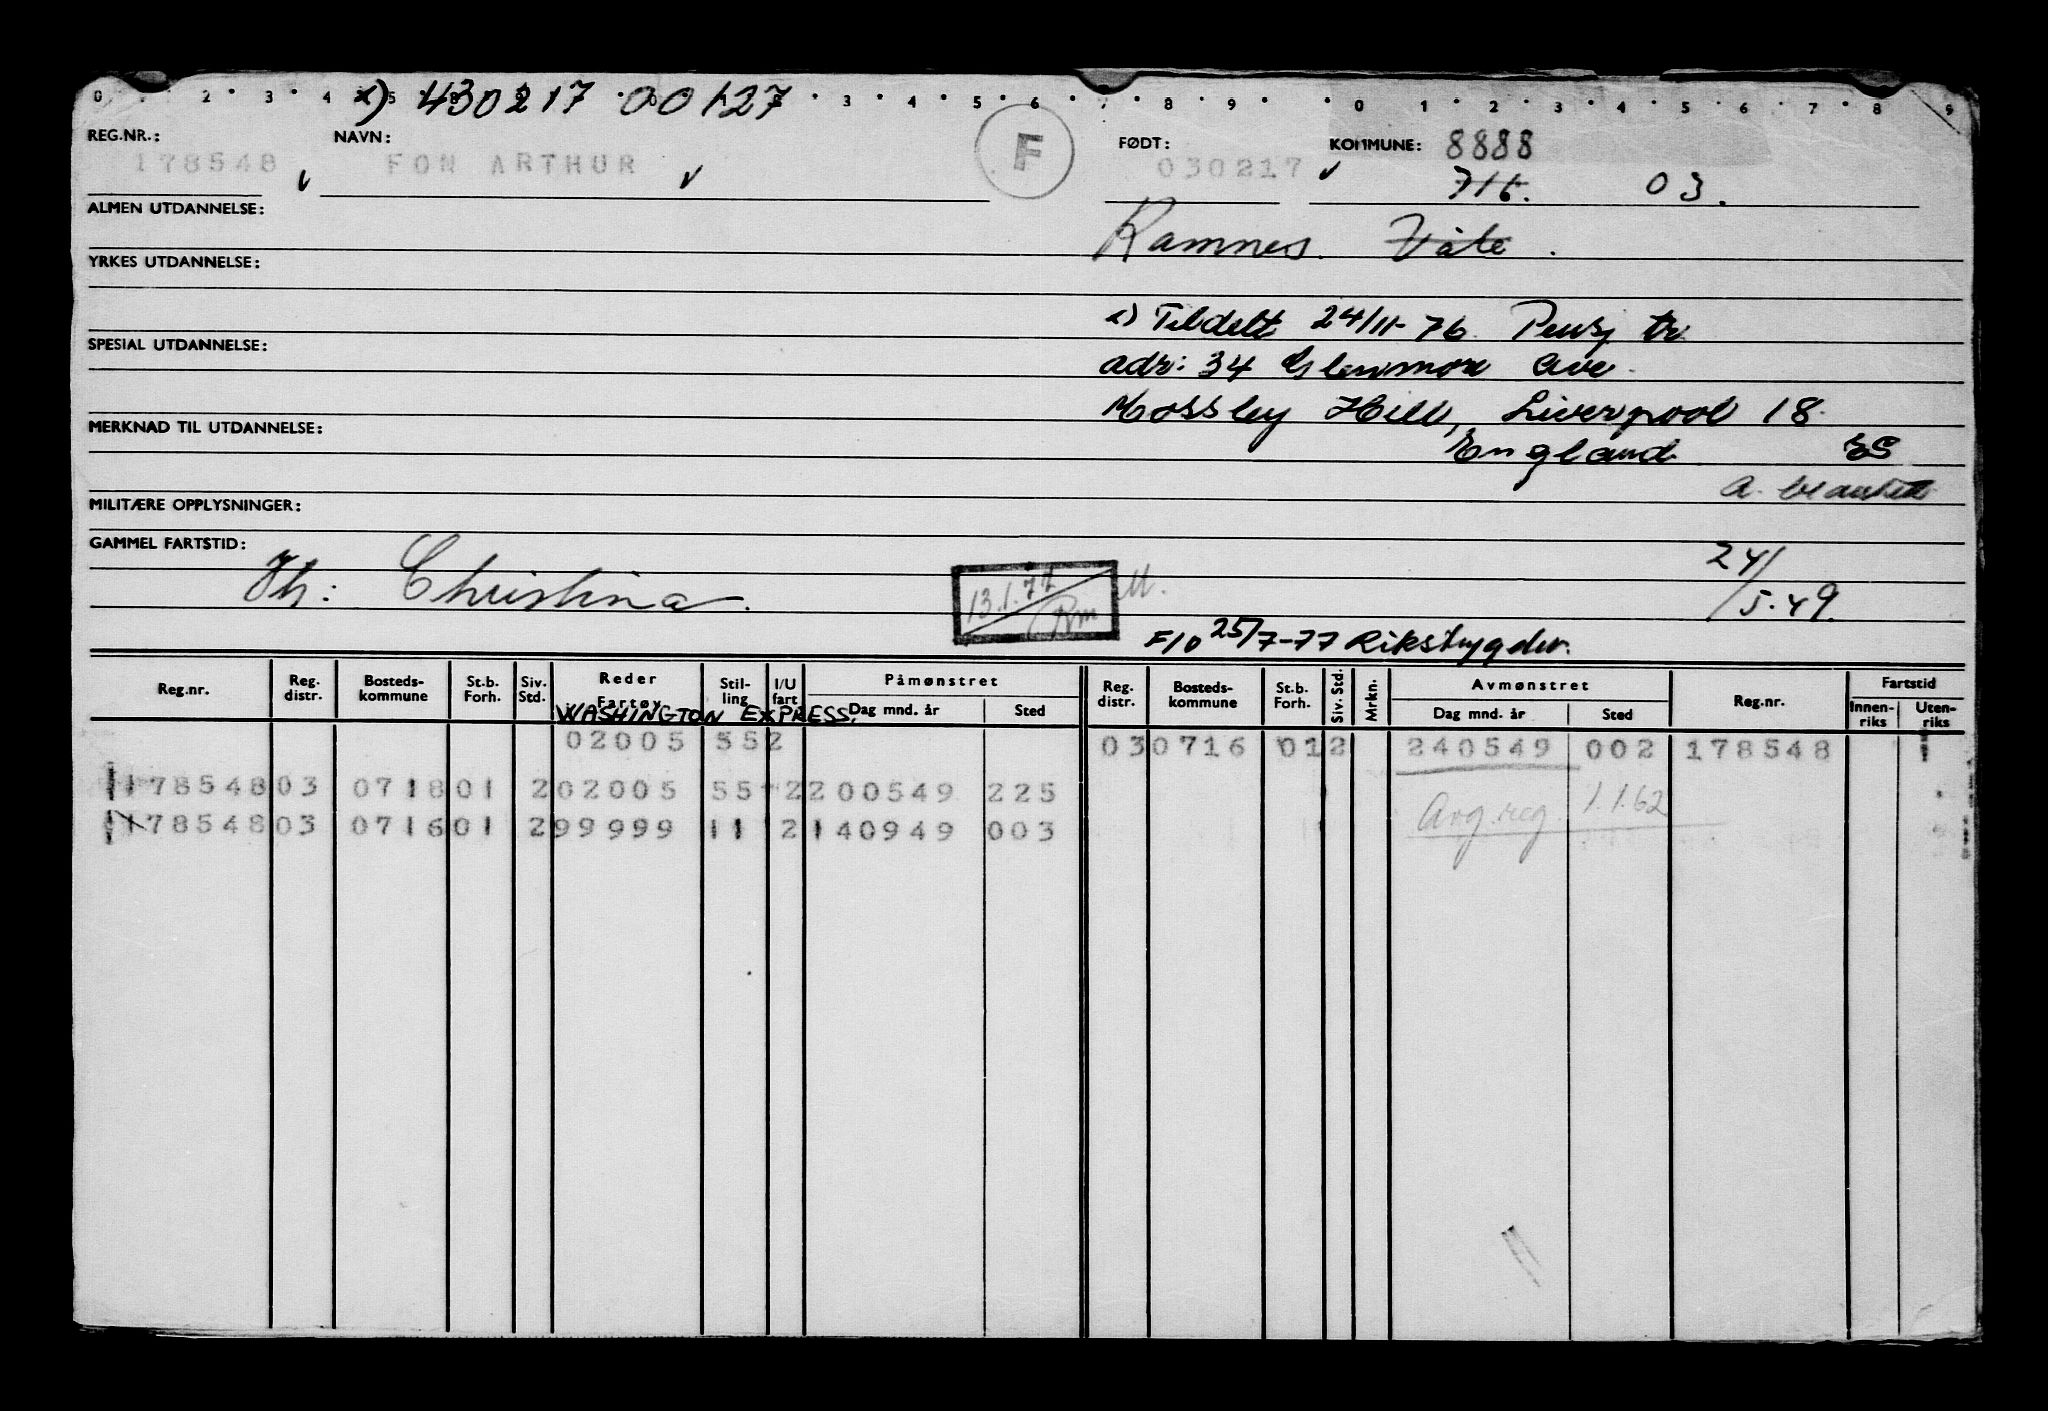 0 2 3 4 5 8 3 4 5 6 7 8 9 0 1 2 3 4 5 6 7 8 9
x) 430217 00127
REG.NR.: NAVN: FØDT: KOMMUNE: 8888
178548 FON ARTHUR F 030217 716. 03.
ALMEN UTDANNELSE:
Ramnes. Våle.
YRKES UTDANNELSE:
x) Tildelt 24/11-76. Pensj tr.
SPESIAL UTDANNELSE:
adr: 34 Glenmore Ave.
Mossley Hill, Liverpool 18.
MERKNAD TIL UTDANNELSE:
England
MILITÆRE OPPLYSNINGER:
GAMMEL FARTSTID:
Hh: Christina. 13.1.77 24/5.49.
F/O 25/7-77 Rikstrygdev.
Reg.nr. Reg. distr. Bosteds-kommune St.b. Forh. Siv. Std. Reder Fartøy Stil-ling I/U fart Påmønstret Dag mnd. år Sted Reg. distr. Bosteds-kommune St.b. Forh. Siv. Std. Mrkn. Avmønstret Dag mnd. år Sted Reg.nr. Fartstid Innen-riks Uten-riks
WASHINGTON EXPRESS.
02005 552 030716 012 240549 002 178548
178548 03 0718 01 2 02005 55 2 200549 225 Avg.reg. 1.1.62
178548 03 0716 01 2 99999 11 2 140949 003